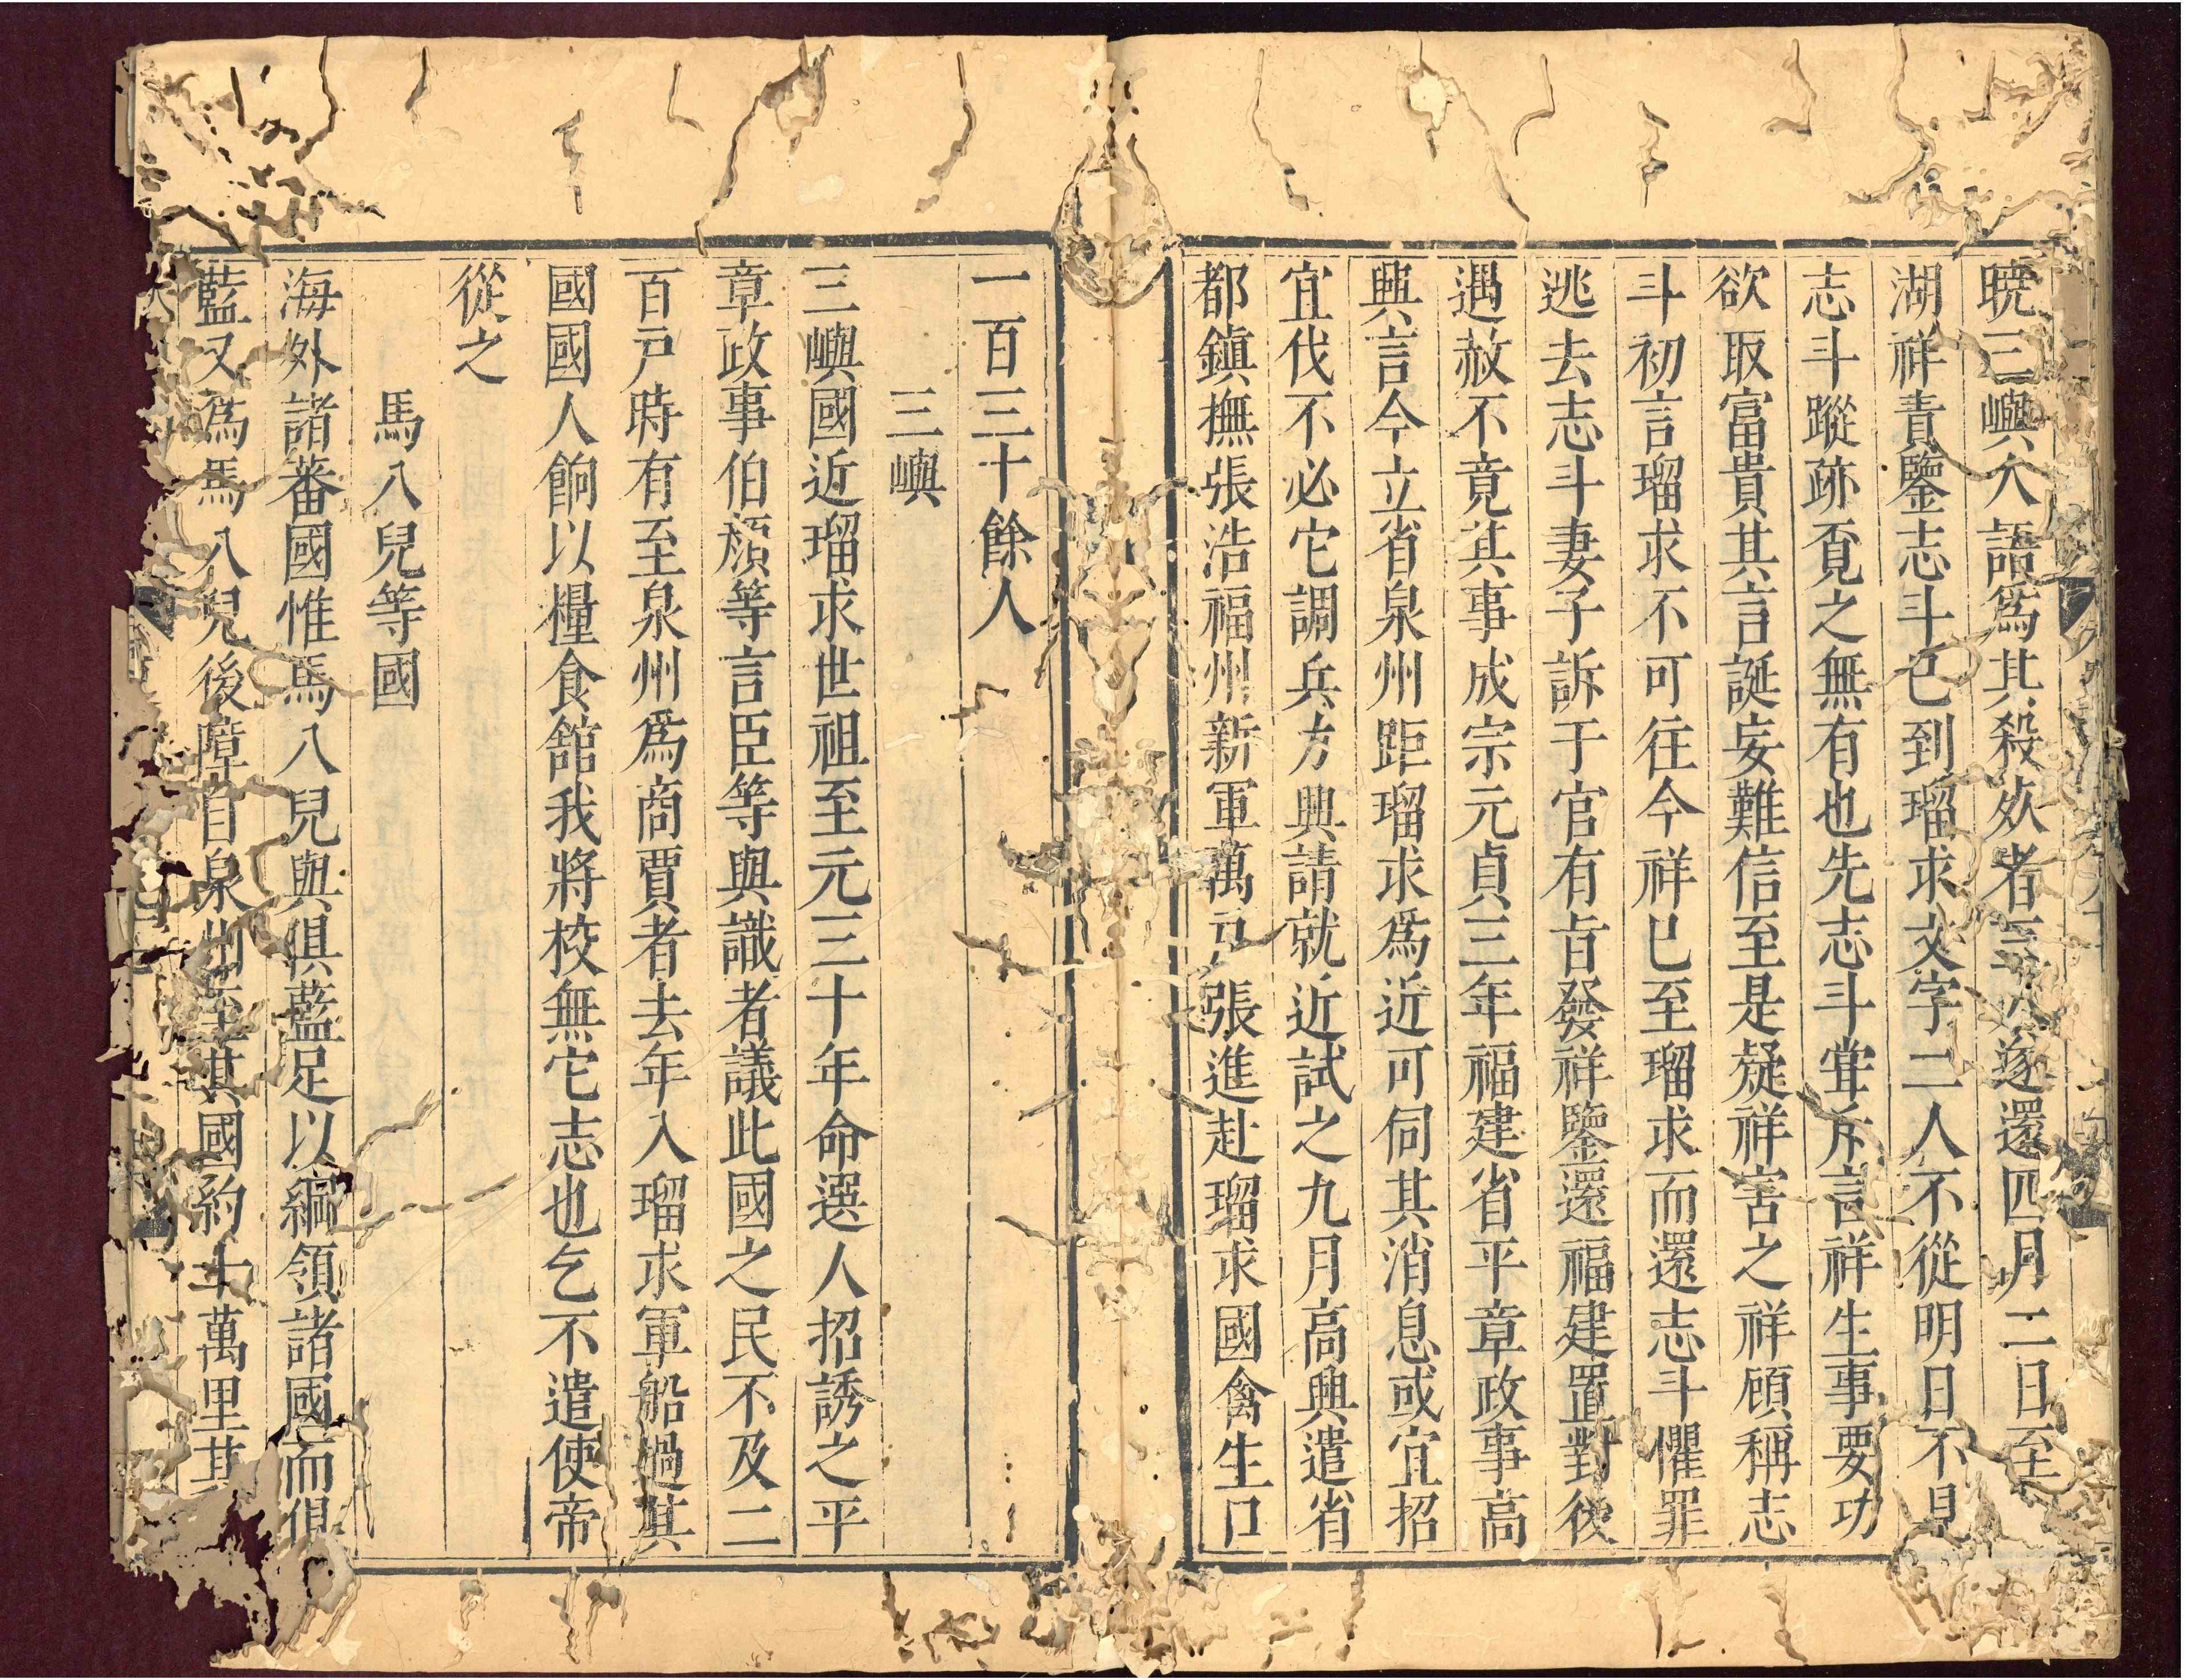 曉三嶼人語爲其殺死者三人遂還四月二日至
湖祥責鑒志斗已到瑠求文字二人不從明日不見
志斗蹤跡覔之無有也先志斗甞斥言祥生事要功
欲取富貴其言誕妄難信至是疑祥害之祥顧稱志
斗初言瑠求不可往今祥已至瑠求而還志斗懼罪
逃去志斗妻子訴于官有旨發祥鑒還福建置對後
遇赦不竟其事成宗元貞三年福建省平章政事高
興言今立省泉州距瑠求爲近可伺其消息或宜招
宜伐不必它調兵力興請就近試之九月高興遣省
都鎮撫張浩福州新軍萬戶張進赴瑠求國禽生口
一百三十餘人
三嶼
三嶼國近瑠求世祖至元三十年命選人招誘之平
章政事伯顏等言臣等與識者議此國之民不及二
百戸時有至泉州爲商賈者去年入瑠求軍船過其
國國人餉以糧食舘我將校無它志也乞不遣使帝
從之
馬八兒等國
海外諸蕃國惟馬八兒與俱藍足以綱領諸國而俱
藍又爲馬八兒後障自泉州至其國約十萬里其